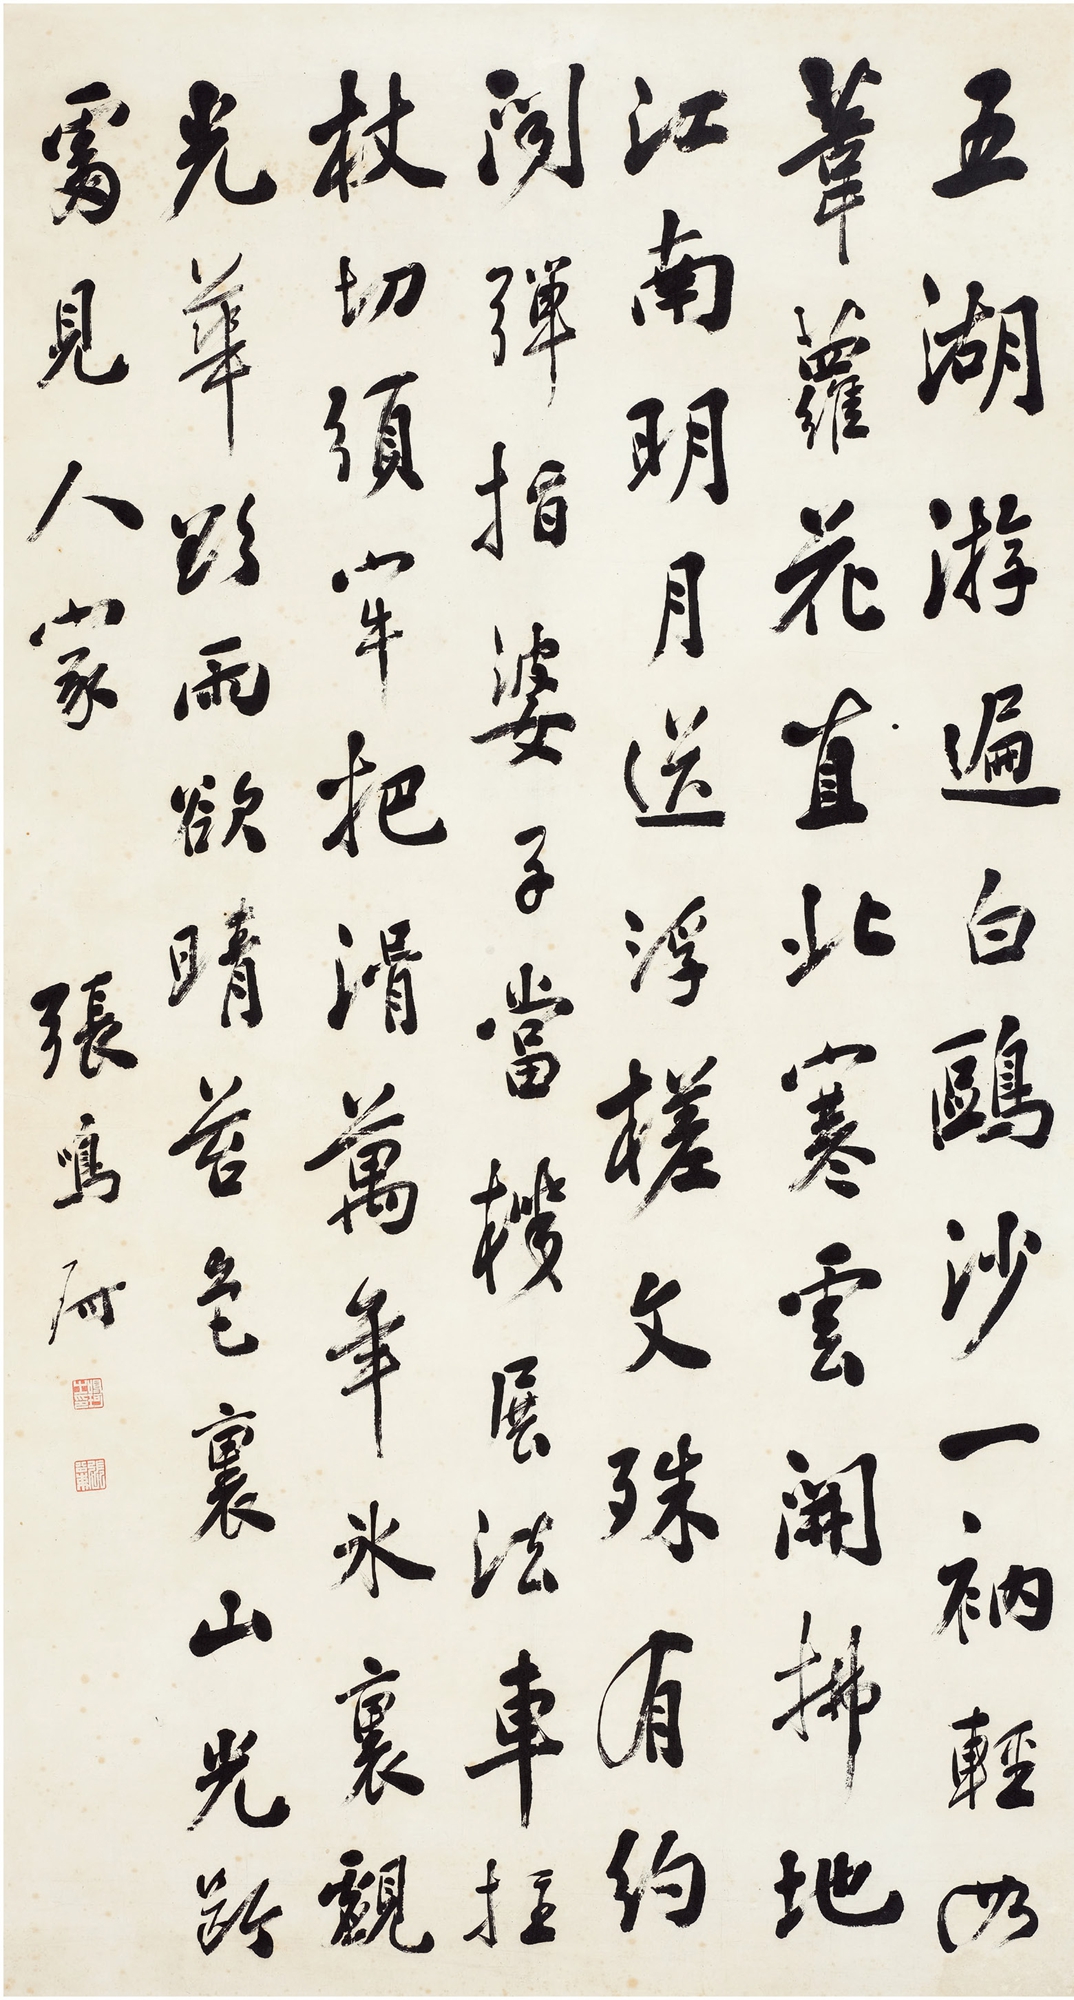 五湖游遍白鷗沙一衲輕如
葦蘿花直北寒雲開拂地
江南明月送浮槎文殊有約
閑彈指婆子當機展法車拄
杖切須牢把滑萬年冰裏觀
光華 雨欲晴苔色裏山光斷
處見人家
張鳴珂